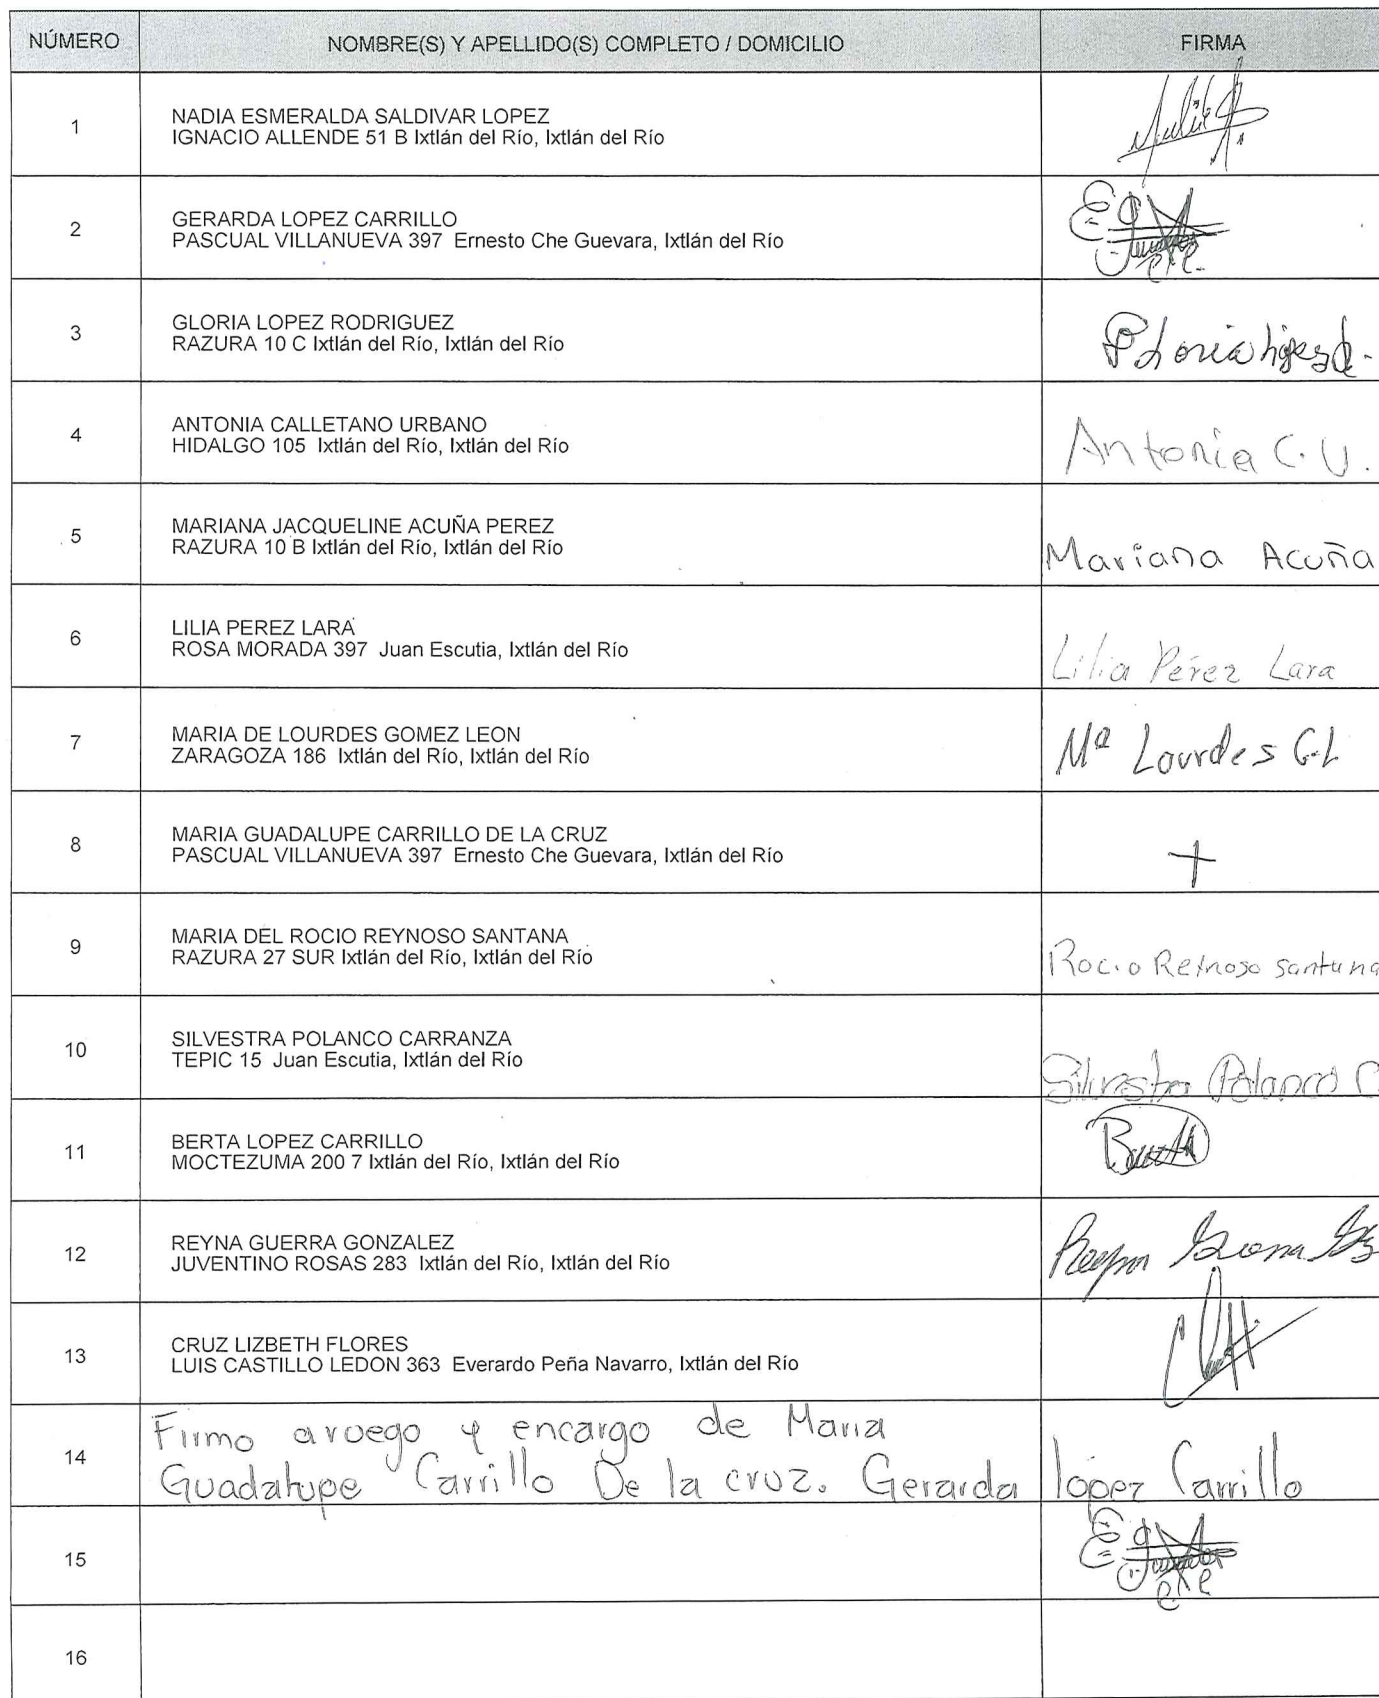 NÚMERO NOMBRE(S) Y APELLIDO(S) COMPLETO / DOMICILIO FIRMA
1 NADIA ESMERALDA SALDIVAR LOPEZ
IGNACIO ALLENDE 51 B Ixtlán del Río, Ixtlán del Río
2 GERARDA LOPEZ CARRILLO
PASCUAL VILLANUEVA 397 Ernesto Che Guevara, Ixtlán del Río
3 GLORIA LOPEZ RODRIGUEZ
RAZURA 10 C Ixtlán del Río, Ixtlán del Río
4 ANTONIA CALLETANO URBANO
HIDALGO 105 Ixtlán del Río, Ixtlán del Río
Antonia C. U.
5 MARIANA JACQUELINE ACUÑA PEREZ
RAZURA 10 B Ixtlán del Río, Ixtlán del Río
Mariana Acuña
6 LILIA PEREZ LARA
ROSA MORADA 397 Juan Escutia, Ixtlán del Río
Lilia Pérez Lara
7 MARIA DE LOURDES GOMEZ LEON
ZARAGOZA 186 Ixtlán del Río, Ixtlán del Río
Mª Lourdes G.L
8 MARIA GUADALUPE CARRILLO DE LA CRUZ
PASCUAL VILLANUEVA 397 Ernesto Che Guevara, Ixtlán del Río
+
9 MARIA DEL ROCIO REYNOSO SANTANA
RAZURA 27 SUR Ixtlán del Río, Ixtlán del Río
Rocio Reynoso Santana
10 SILVESTRA POLANCO CARRANZA
TEPIC 15 Juan Escutia, Ixtlán del Río
Silvestra Polanco C
11 BERTA LOPEZ CARRILLO
MOCTEZUMA 200 7 Ixtlán del Río, Ixtlán del Río
12 REYNA GUERRA GONZALEZ
JUVENTINO ROSAS 283 Ixtlán del Río, Ixtlán del Río
13 CRUZ LIZBETH FLORES
LUIS CASTILLO LEDON 363 Everardo Peña Navarro, Ixtlán del Río
14 Firmo a ruego y encargo de Maria
Guadalupe Carrillo De la cruz. Gerarda lópez Carrillo
15
16